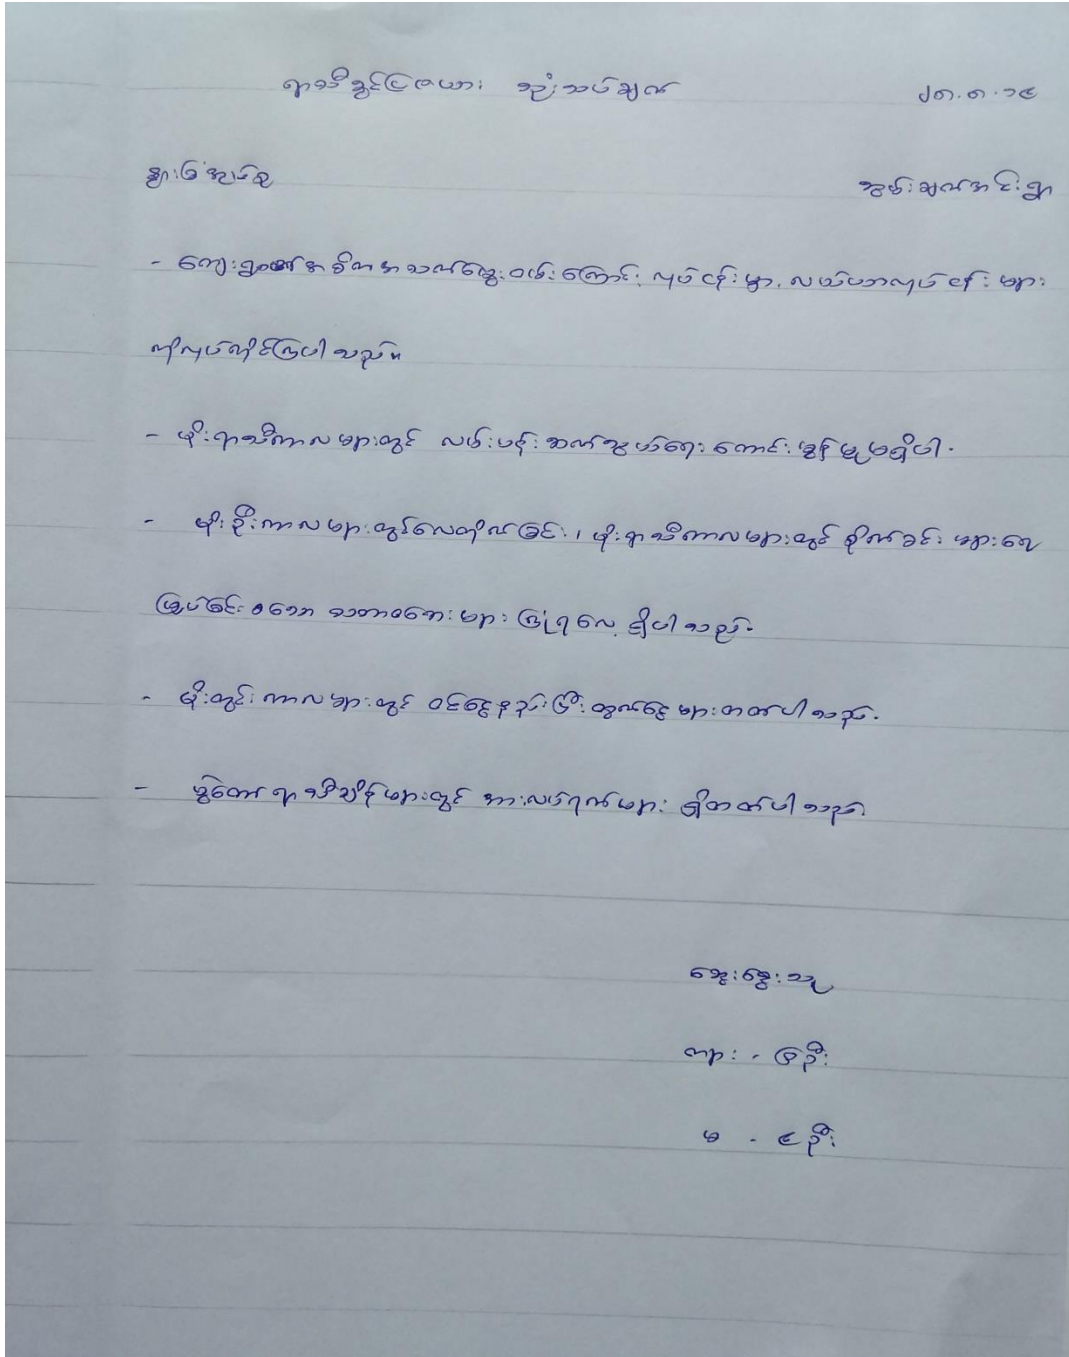 ရာသီခွင်ပြဇယား သုံးသပ်ချက် ၂၈.၈.၁၄
နွားခြံအုပ်စု ညွှန်းချက်အင်းရွာ
- ကျေးရွာ၏အဓိကအသက်မွေးဝမ်းကြောင်းလုပ်ငန်းမှာ လယ်ယာလုပ်ငန်းများ
ကိုလုပ်ကိုင်ကြပါသည်။
- မိုးရာသီကာလများတွင် လမ်းပန်းဆက်သွယ်ရေးကောင်းမွန်မှုမရှိပါ.
- မိုးဦးကာလများတွင်လေတိုက်ခြင်း၊ မိုးရာသီကာလများတွင် ရေ
မြှုပ်ခြင်း စသော သဘာဝဘေးများ ကြုံရလေ့ရှိပါသည်.
- မိုးတွင်းကာလများတွင် ဝင်ငွေနည်းပြီးထွက်ငွေများတတ်ပါသည်.
- ပွဲတော်ရာသီချိန်များတွင် အားလပ်ရက်များ ရှိတတ်ပါသည်
ဆွေးနွေးသူ
ကျား - ၉ဦး
မ - ၄ဦး